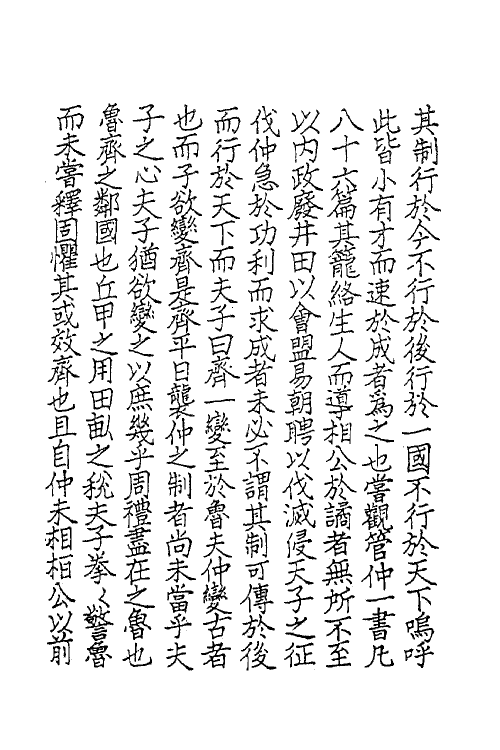 其制行於今不行於後行於一國不行於天下嗚呼
此皆小有才而速於成者爲之也嘗觀管仲一書凡
八十六篇其籠絡生人而導相公於譎者無所不至
以内政廢井田以會盟易朝聘以伐滅侵天子之征
伐仲急於功利而求成者未必不謂其制可傳於後
而行於天下而夫子曰齊一變至於魯夫仲變古者
也而子欲變齊是齊平日襲仲之制者尚未當乎夫
子之心夫子猶欲變之以庶幾乎周禮盡在之魯也
魯齊之鄰國也丘甲之用田畝之稅夫子拳々警魯
而未嘗釋固懼其或效齊也且自仲未相桓公以前